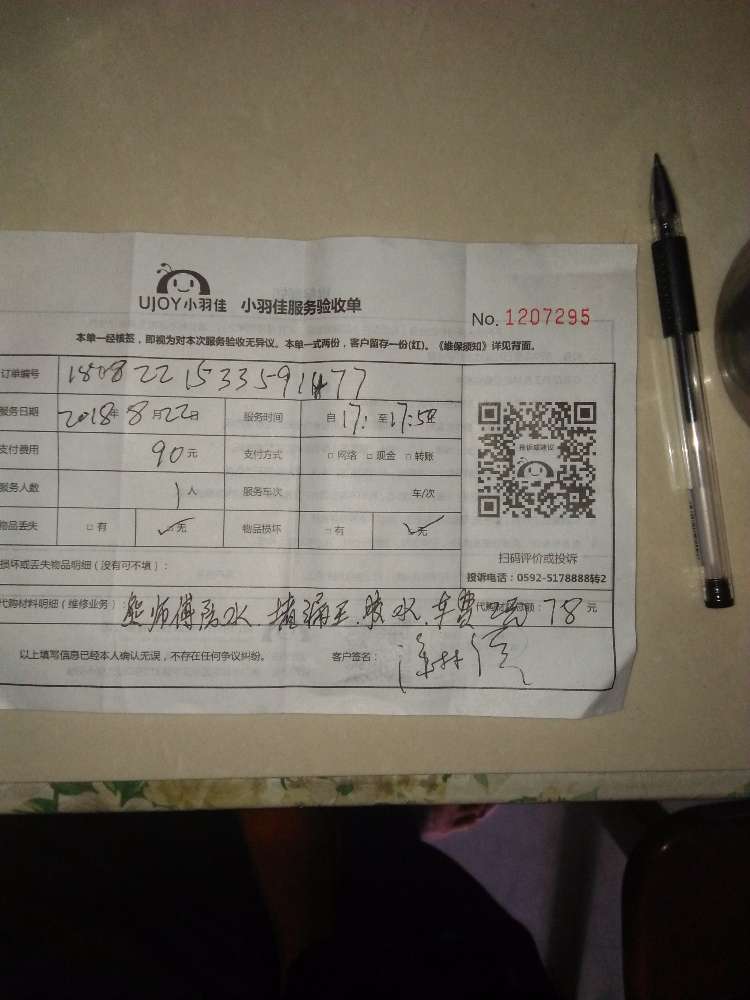 UJOY小羽佳 小羽佳服务验收单
No. 1207295
本单一经核签，即视为对本次服务验收无异议。本单一式两份，客户留存一份(红)。《维保须知》详见背面。
订单编号 1808221533591477
服务日期 2018年8月22日 服务时间 自17: 至17:50
支付费用 90元 支付方式 □网络 □现金 □转账
服务人数 1人 服务车次 车/次
物品丢失 □有 □无 物品损坏 □有 □无
投诉或建议
扫码评价或投诉
投诉电话：0592-5178888转2
损坏或丢失物品明细（没有可不填）：
代购材料明细（维修业务）：熊师傅防水、堵漏王、胶水、车费 代购材料总额：78元
以上填写信息已经本人确认无误，不存在任何争议纠纷。 客户签名：